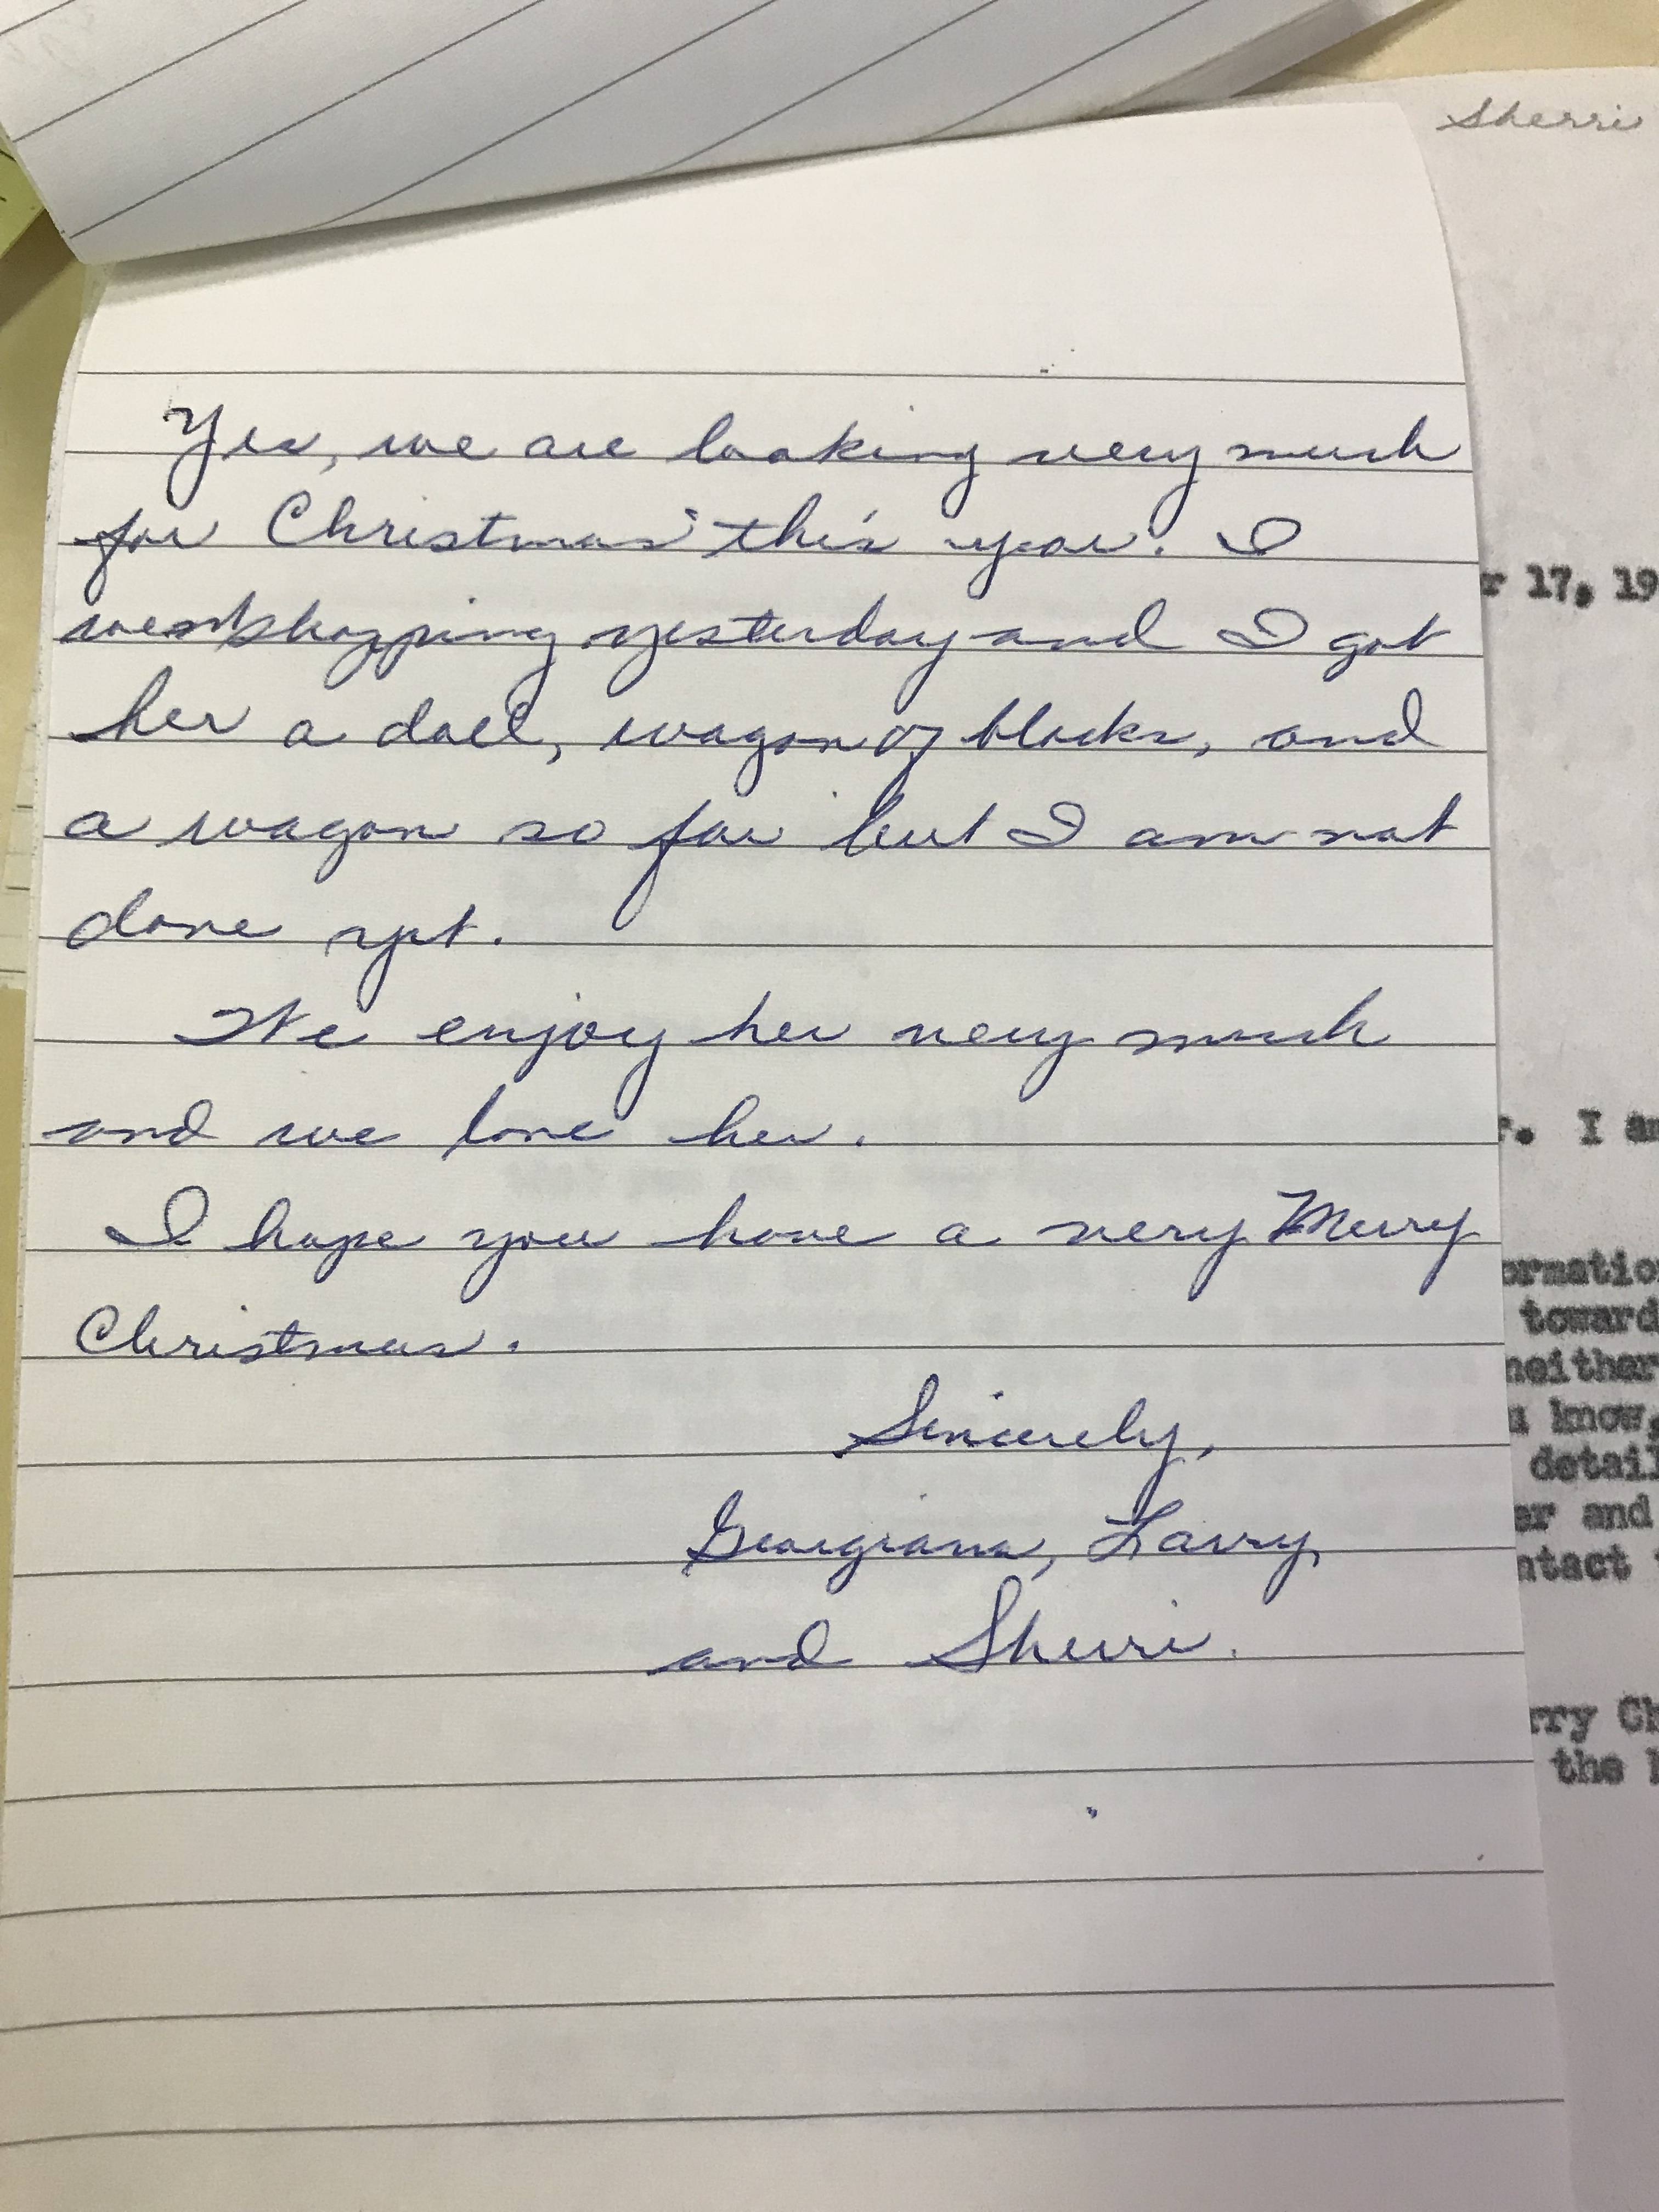 Sherri
Yes, we are looking very much
for Christmas this year. I
went shopping yesterday and I got
her a doll, wagon of blocks, and
a wagon so far but I am not
done yet.
We enjoy her very much
and we love her.
I hope you have a very Merry
Christmas.
Sincerely,
Georgiana, Larry,
and Sherri.
r 17, 19
r. I am
ormation
toward
neither
u know,
detail
er and
ntact
rry Ch
the